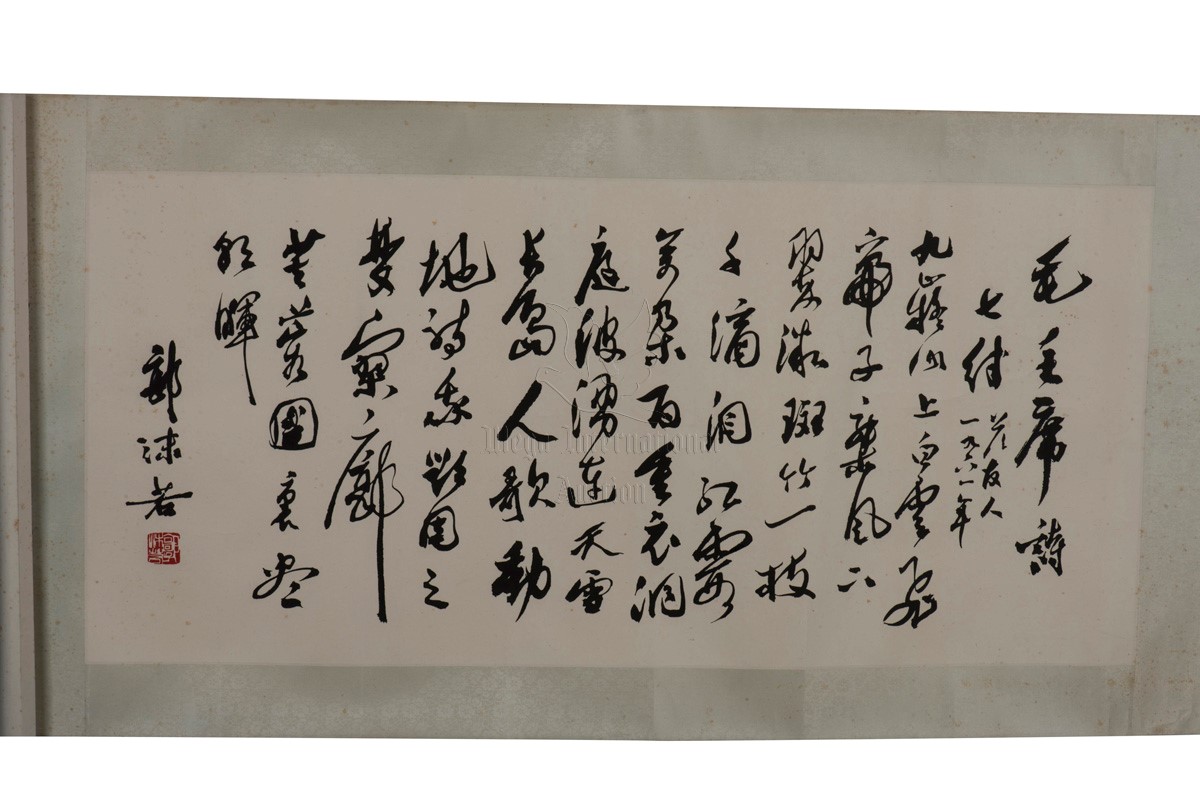 毛主席詩
七律
答友人
一九六一年
九嶷山上白雲飛
帝子乘風下
翠微斑竹一枝
千滴泪紅霞
萬朵百重衣洞
庭波湧連天雪
長島人歌動
地詩我欲因之
夢寥廓
芙蓉國裏盡
朝暉
郭沫若
International
Auction